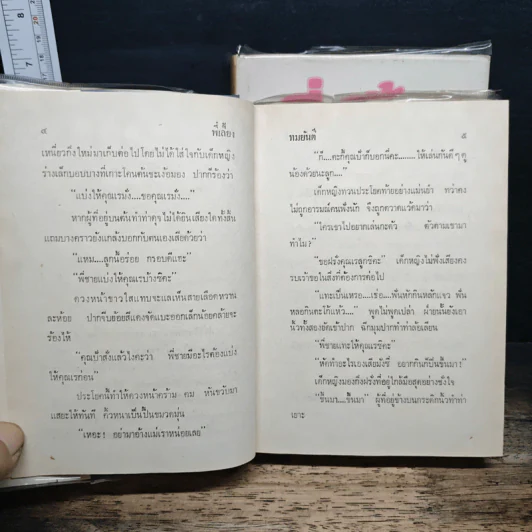 ๔ พี่เลี้ยง
เหนี่ยวกิ่งใหม่มาเก็บต่อไปโดยไม่ได้ใส่ใจกับเด็กหญิง
ร่างเล็กบอบบางที่เกาะโคนต้นชะเง้อมอง ปากก็ร้องว่า
"แบ่งให้คุณเรมั่ง....ขอคุณเรมั่ง...."
หากผู้ที่อยู่บนต้นทำท่าดุจ ไม่ได้ยินเสียงใดทั้งสิ้น
แถมบางคราวยังแกล้งบอกกับตนเองเสียด้วยว่า
"แหม....ลูกนี้อร่อย กรอบดีแฮะ"
"พี่ชายแบ่งให้คุณเรบ้างซิคะ"
ดวงหน้าขาวใสแทบจะแลเห็นสายเลือดหวาน
ละห้อย ปากจิ้มลิ้มสีแดงจัดแบะออกเล็กน้อยคล้ายจะ
ร้องไห้
"คุณป้าสั่งแล้วไงคะว่า พี่ชายมีอะไรต้องแบ่ง
ให้คุณเรก่อน"
ประโยคนี้ทำให้ดวงหน้าคร้าม คม หันขวับมา
แสยะให้ทันที คิ้วหนาเป็นปื้นขมวดมุ่น
"เหอะ ! อย่ามาอ้างแม่เราหน่อยเลย"
ทมยันตี ๕
"ก็....คะก็คุณป้าก็บอกนี่คะ........ให้เล่นกันดี ๆ ดู
น้องด้วยนะลูก...."
เด็กหญิงทวนประโยคท้ายอย่างแม่นยำ ทว่าคง
ไม่ถูกอารมณ์คนฟังนัก จึงถูกตวาดแว้ดมาว่า
"ใครเขาไปอยากเล่นกะตัว ตัวตามเขามา
ทำไม?"
"ขอฝรั่งคุณเรลูกซิคะ" เด็กหญิงไม่ฟังเสียงคง
รบเร้าขอในสิ่งที่ต้องการต่อไป
พูดไม่พูดเปล่า ฝ่ายนั้นยังเอา
นิ้วทั้งสองลัดเข้าปาก ฉีกมุมปากทำท่าล้อเลียน
"พี่ชายแหะให้คุณเรซิคะ"
"หัดทำอะไรเองเสียมั่งซี่ อยากกินก็ปีนขึ้นมา"
เด็กหญิงมองกิ่งฝรั่งที่อยู่ใกล้มือสุดอย่างชั่งใจ
"ขึ้นมา....ขึ้นมา" ผู้ที่อยู่ข้างบนกระดิกนิ้วทำท่า
เยาะ